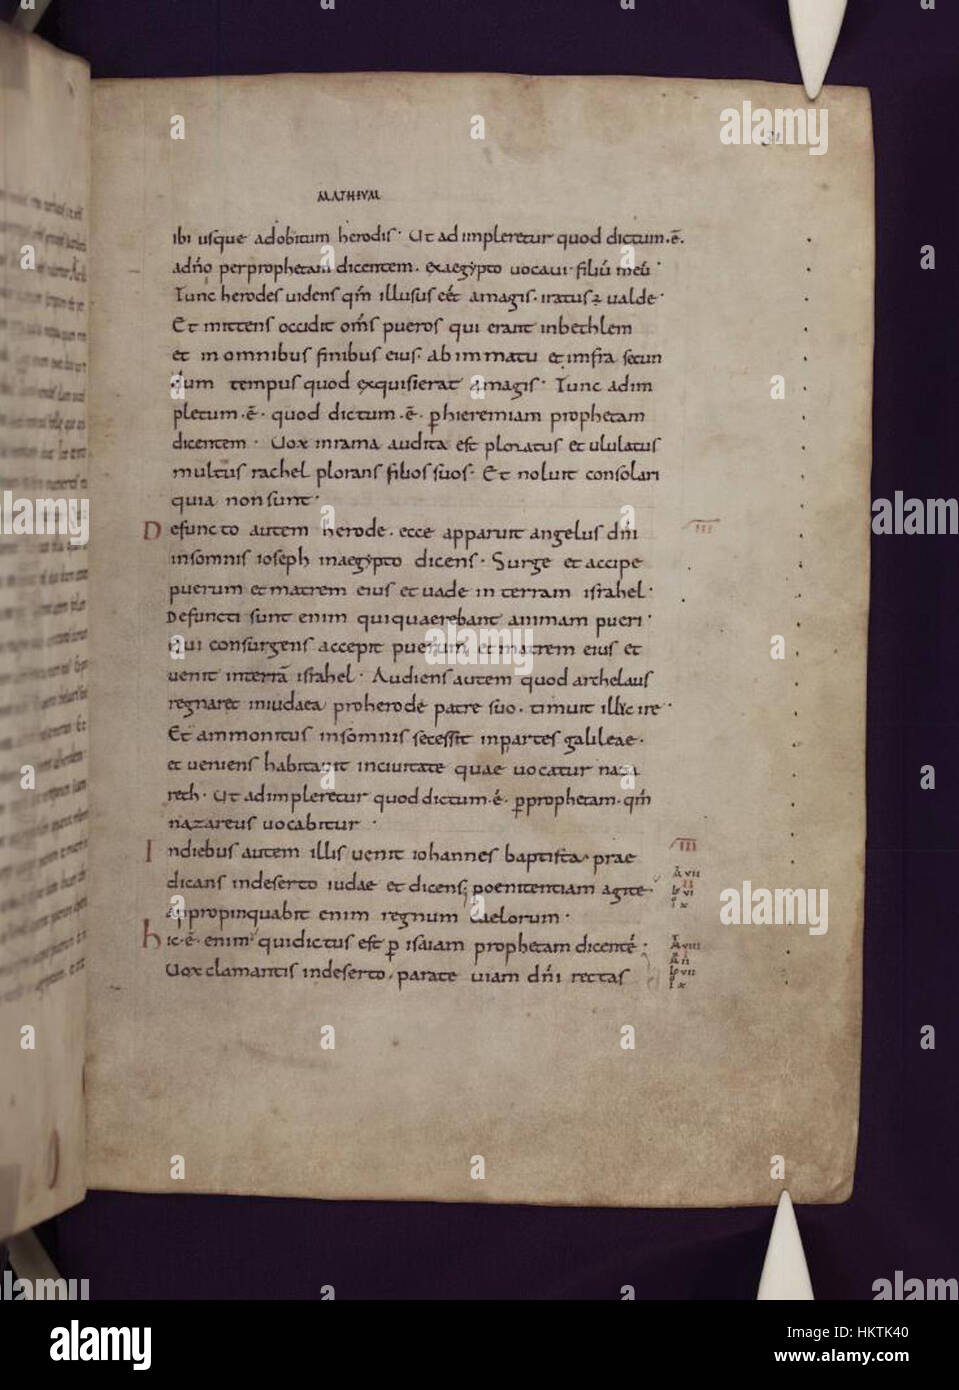 MATHEUM
ibi usque adobitum herodis· Ut adimpleretur quod dictum·ē·
adn̄o perprophetam dicentem· exaegypto uocaui·filiū meū·
Tunc herodes uidens qm̄ illusus eēt amagis· iratus ualde·
Et mittens occidit om̄s pueros qui erant inbethlem
et in omnibus finibus eius· abimmatu et infra secun
dum tempus quod exquisierat amagis· Tunc adim
pletum·ē· quod dictum·ē· p̱hieremiam prophetam
dicentem· Uox inrama audita est ploratus et ululatus
multus rachel plorans filios suos· Et noluit consolari
quia non sunt·
Defuncto autem herode· ecce apparuit angelus dn̄i
insomnis ioseph inaegypto dicens· Surge et accipe
puerum et matrem eius et uade in terram israhel·
Defuncti sunt enim qui quaerebant animam pueri·
Qui consurgens accepit puerum et matrem eius et
uenit interrā israhel· Audiens autem quod archelaus
regnaret iniudaea proherode patre suo· timuit illic ire·
Et ammonitus insomnis secessit inpartes galileae·
et ueniens habitauit inciuitate quae uocatur naza
reth· Ut adimpleretur quod dictum·ē· p̱prophetam· qm̄
nazareus uocabitur·
III
Indiebus autem illis uenit iohannes baptista prae
dicans indeserto iudae et dicens; poenitentiam agite
appropinquabit enim regnum caelorum·
Hic·ē· enim quidictus est p̱ isaiam prophetam dicentē·
Uox clamantis indeserto, parate uiam dn̄i rectas
alamy
a
alamy
Image ID: HKTK40
www.alamy.com